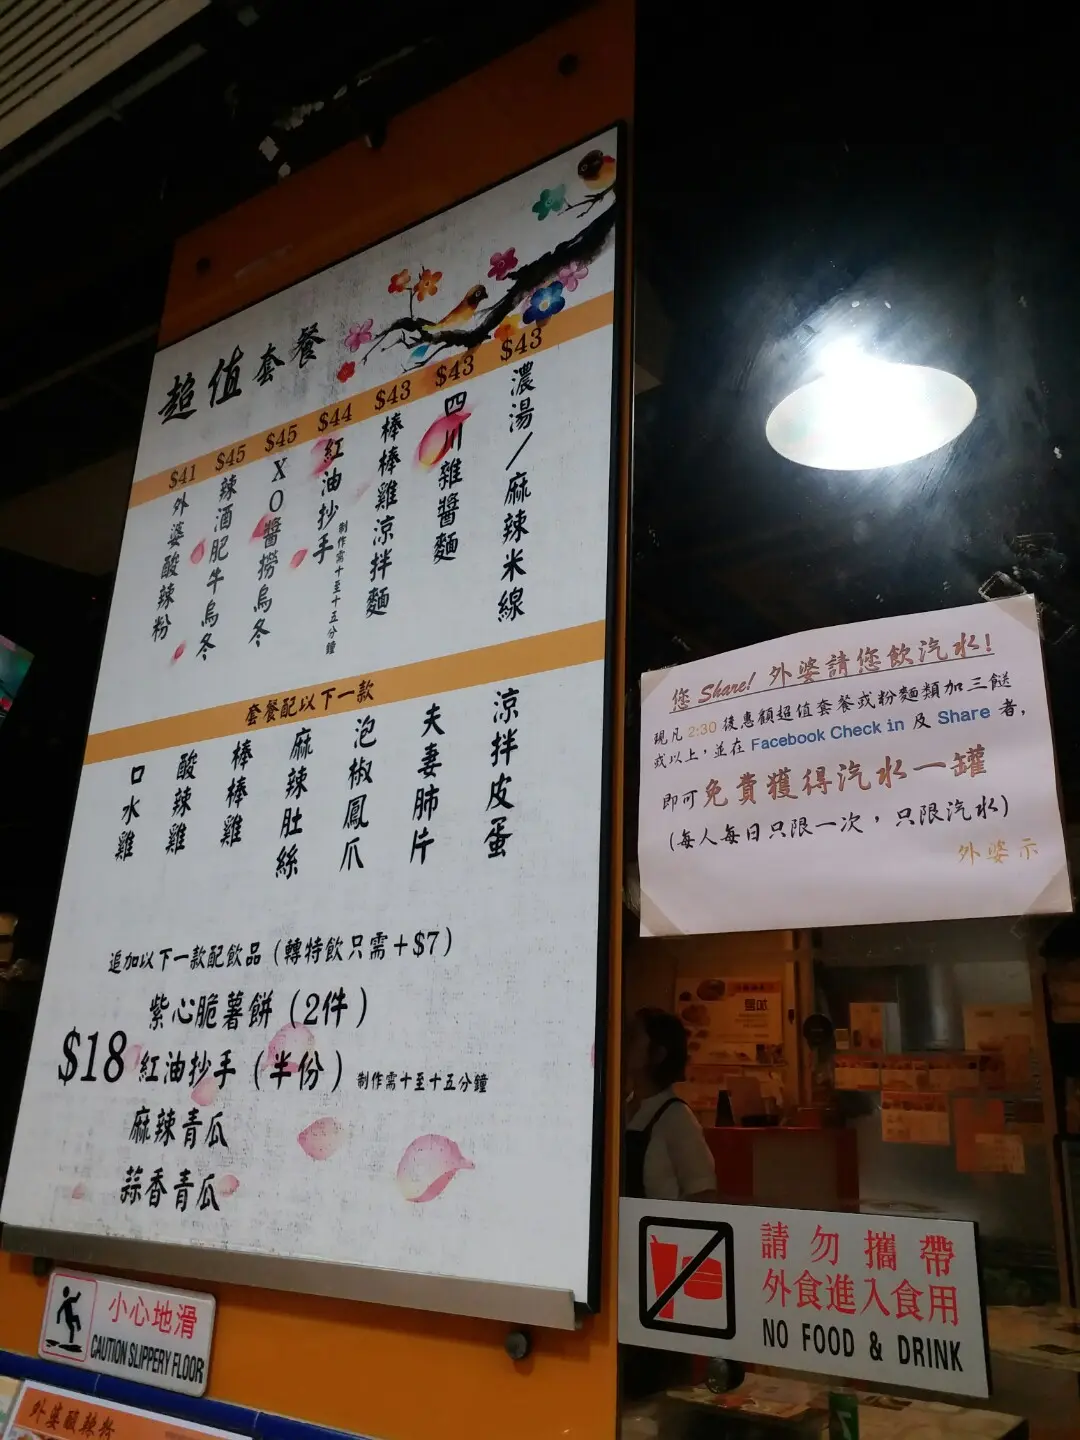 超值套餐
$43 濃湯／麻辣米線
$43 四川雜醬麵
$43 棒棒雞涼拌麵
$44 紅油抄手 制作需十至十五分鐘
$45 XO醬撈烏冬
$45 辣酒肥牛烏冬
$41 外婆酸辣粉
套餐配以下一款
涼拌皮蛋
夫妻肺片
泡椒鳳爪
麻辣肚絲
棒棒雞
酸辣雞
口水雞
追加以下一款配飲品（轉特飲只需＋$7）
$18
紫心脆薯餅（2件）
紅油抄手（半份）制作需十至十五分鐘
麻辣青瓜
蒜香青瓜
您 Share! 外婆請您飲汽水!
現凡 2:30 後惠顧超值套餐或粉麵類加三餸
或以上，並在 Facebook Check in 及 Share 者，
即可免費獲得汽水一罐
(每人每日只限一次，只限汽水)
外婆示
請勿攜帶
外食進入食用
NO FOOD & DRINK
小心地滑
CAUTION SLIPPERY FLOOR
外婆酸辣粉